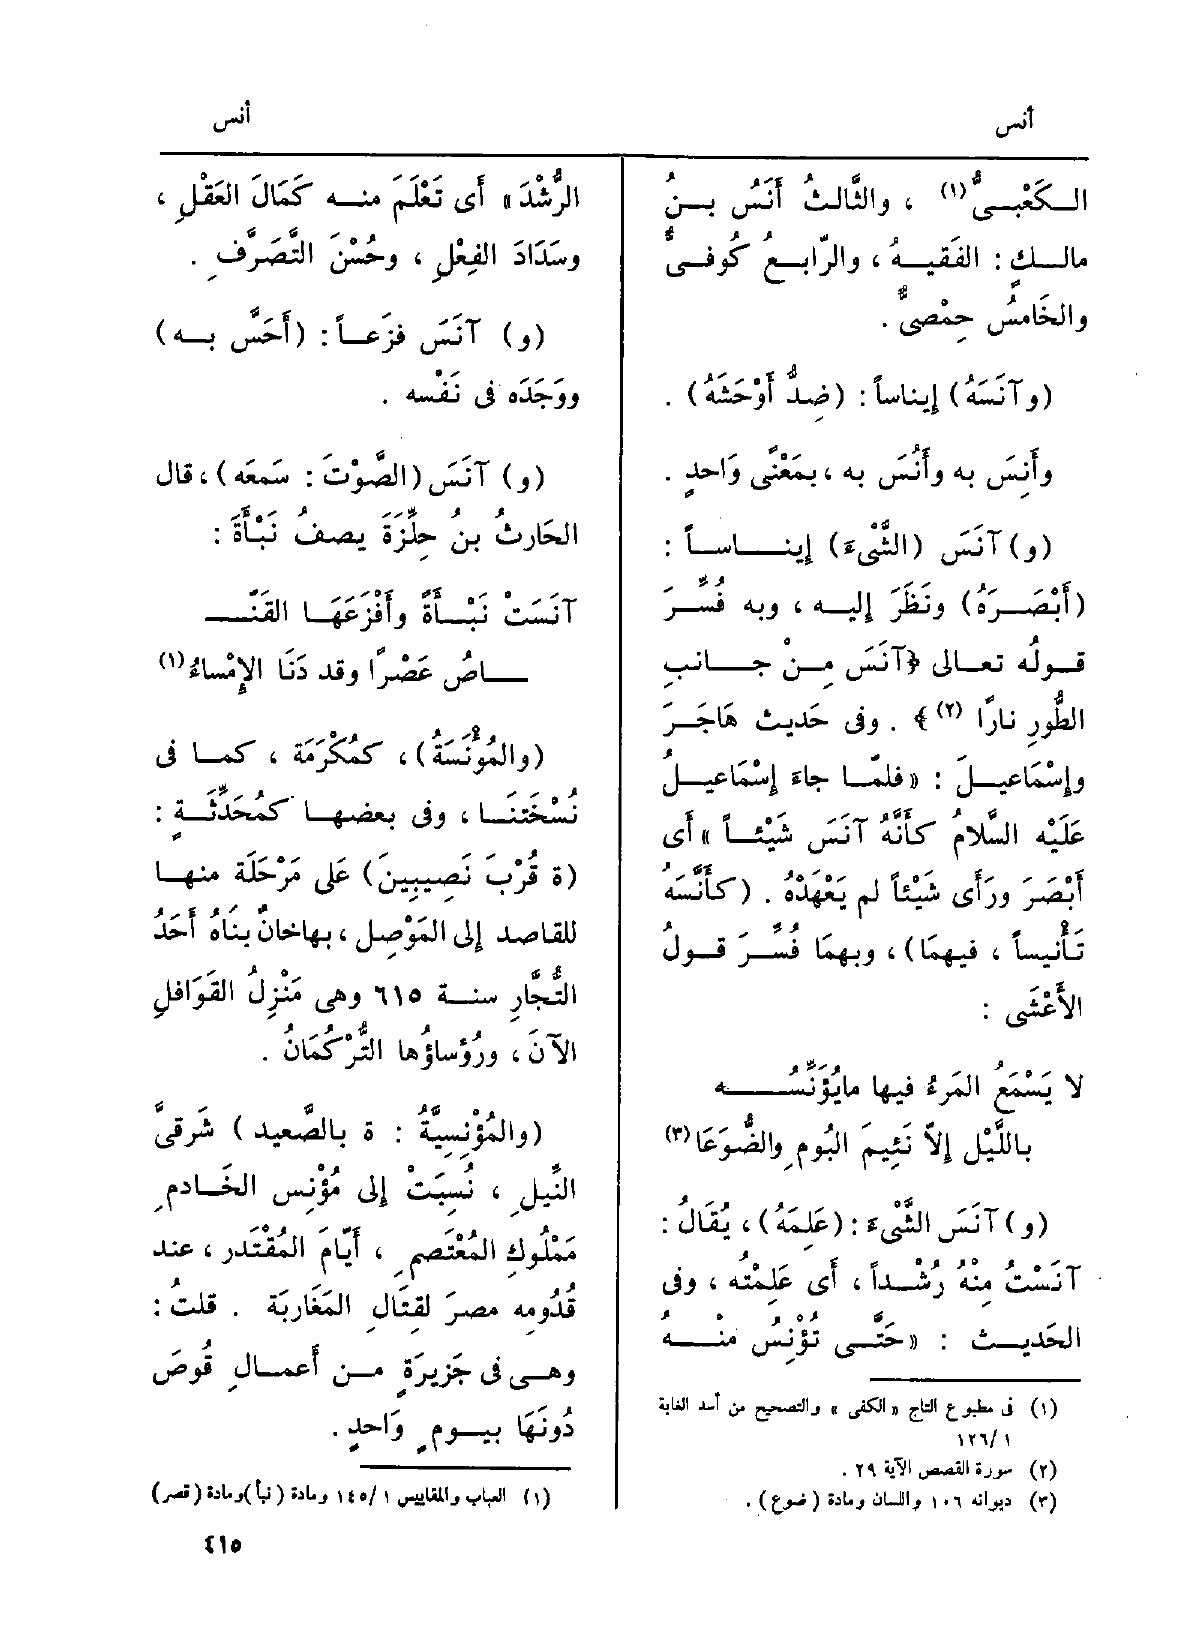 أنس
أنس
الكَعْبىُّ (١) ، والثَّالثُ أَنَسُ بنُ
مالكٍ : الفَقيهُ ، والرّابعُ كُوفىٌّ
والخَامسُ حِمْصىٌّ .
(وآنَسَهُ) إيناساً : (ضِدُّ أَوْحَشَهُ) .
وأَنِسَ به وأَنُسَ به ، بمَعْنًى وَاحدٍ .
(و) آنَسَ (الشَّىْءَ) إيناساً :
(أَبْصَرَهُ) ونَظَرَ إليه ، وبه فُسِّرَ
قولُه تعالى ﴿آنَسَ مِنْ جانبِ
الطُّورِ نارًا (٢)﴾ . وفى حديث هَاجَرَ
وإسْمَاعيلَ : « فلمَّا جاءَ إسْمَاعيلُ
عَلَيْه السَّلامُ كأَنَّهُ آنَسَ شَيْئاً » أى
أَبْصَرَ ورَأَى شَيْئاً لم يَعْهَدْهُ . (كأَنَّسَهُ
تَأْنيساً ، فيهمَا) ، وبهمَا فُسِّرَ قولُ
الأَعْشَى :
لا يَسْمَعُ المَرءُ فيها مايُؤَنِّسُه
باللَّيْل إلاّ نَئِيمَ البُومِ والضُّوَعَا (٣)
(و) آنَسَ الشَّىْءَ : (عَلِمَهُ) ، يُقَالُ :
آنَسْتُ مِنْهُ رُشْداً ، أى عَلِمْتُه ، وفى
الحَديث : « حَتَّى تُؤْنِسَ منْهُ
(١) فى مطبوع التاج « الكفى » والتصحيح من أسد الغابة
١/ ١٢٦
(٢) سورة القصص الآية ٢٩ .
(٣) ديوانه ١٠٦ واللسان ومادة (ضوع) .
الرُّشْدَ » أى تَعْلَمَ منه كَمَالَ العَقْلِ ،
وسَدَادَ الفِعْلِ ، وحُسْنَ التَّصَرُّفِ .
(و) آنَسَ فزَعاً : (أَحَسَّ به)
ووَجَدَه فى نَفْسه .
(و) آنَسَ (الصَّوْتَ : سَمعَه) ، قال
الحَارثُ بنُ حِلِّزَةَ يصفُ نَبْأَةً :
آنَسَتْ نَبْأَةً وأَفْزَعَهَا القَنَّـ
ـاصُ عَصْرًا وقد دَنَا الإمْساءُ (١)
(والمُؤْنَسَةُ) ، كمُكْرَمَة ، كما فى
نُسْخَتنَا ، وفى بعضها كمُحَدِّثَةٍ :
(ة قُرْبَ نَصِيبِينَ) عَلى مَرْحَلَة منها
للقاصد إلى المَوْصِل ، بهاخانٌ بنَاهُ أَحَدُ
التُّجَّارِ سنة ٦١٥ وهى مَنْزِلُ القَوَافِلِ
الآنَ ، ورُؤساؤُها التُّرْكُمَانُ .
(والمُؤْنِسِيَّةُ : ة بالصَّعيد) شَرقىَّ
النِّيلِ ، نُسِبَتْ إلى مُؤْنِس الخَادمِ
مَمْلُوكِ المُعْتَصمِ ، أَيَّامَ المُقْتَدر ، عند
قُدُومه مصرَ لقتَالِ المَغَارِبَة . قلتُ :
وهى فى جَزيرَةٍ من أَعمالِ قُوصَ
دُونَهَا بيومٍ وَاحدٍ .
(١) العباب والمقاييس ١/ ١٤٥ ومادة (نبأ) ومادة (قصر)
٤١٥